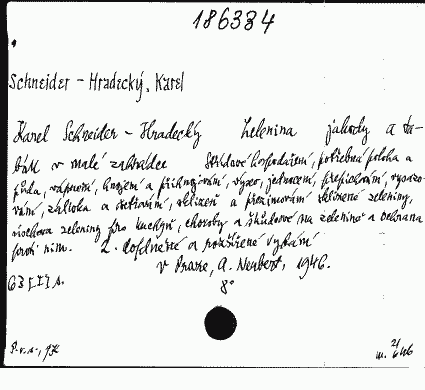 186334
Schneider - Hradecký, Karel
Karel Schneider - Hradecký Zelenina jahody a ta-
bák v malé zahrádce Střídavé hospodaření, potřebná poloha a
půda, vápnění, hnojení a přihnojování, výsev, jednocení, přepichování, vysazo-
vání, zálivka a ošetřování, sklizení a přezimování sklizené zeleniny,
úschova zeleniny pro kuchyň, choroby a škůdcové na zelenině a ochrana
proti nim. 2. doplněné a rozšířené vydání
v Praze, A. Neubert, 1946.
63 [II] s. 8°